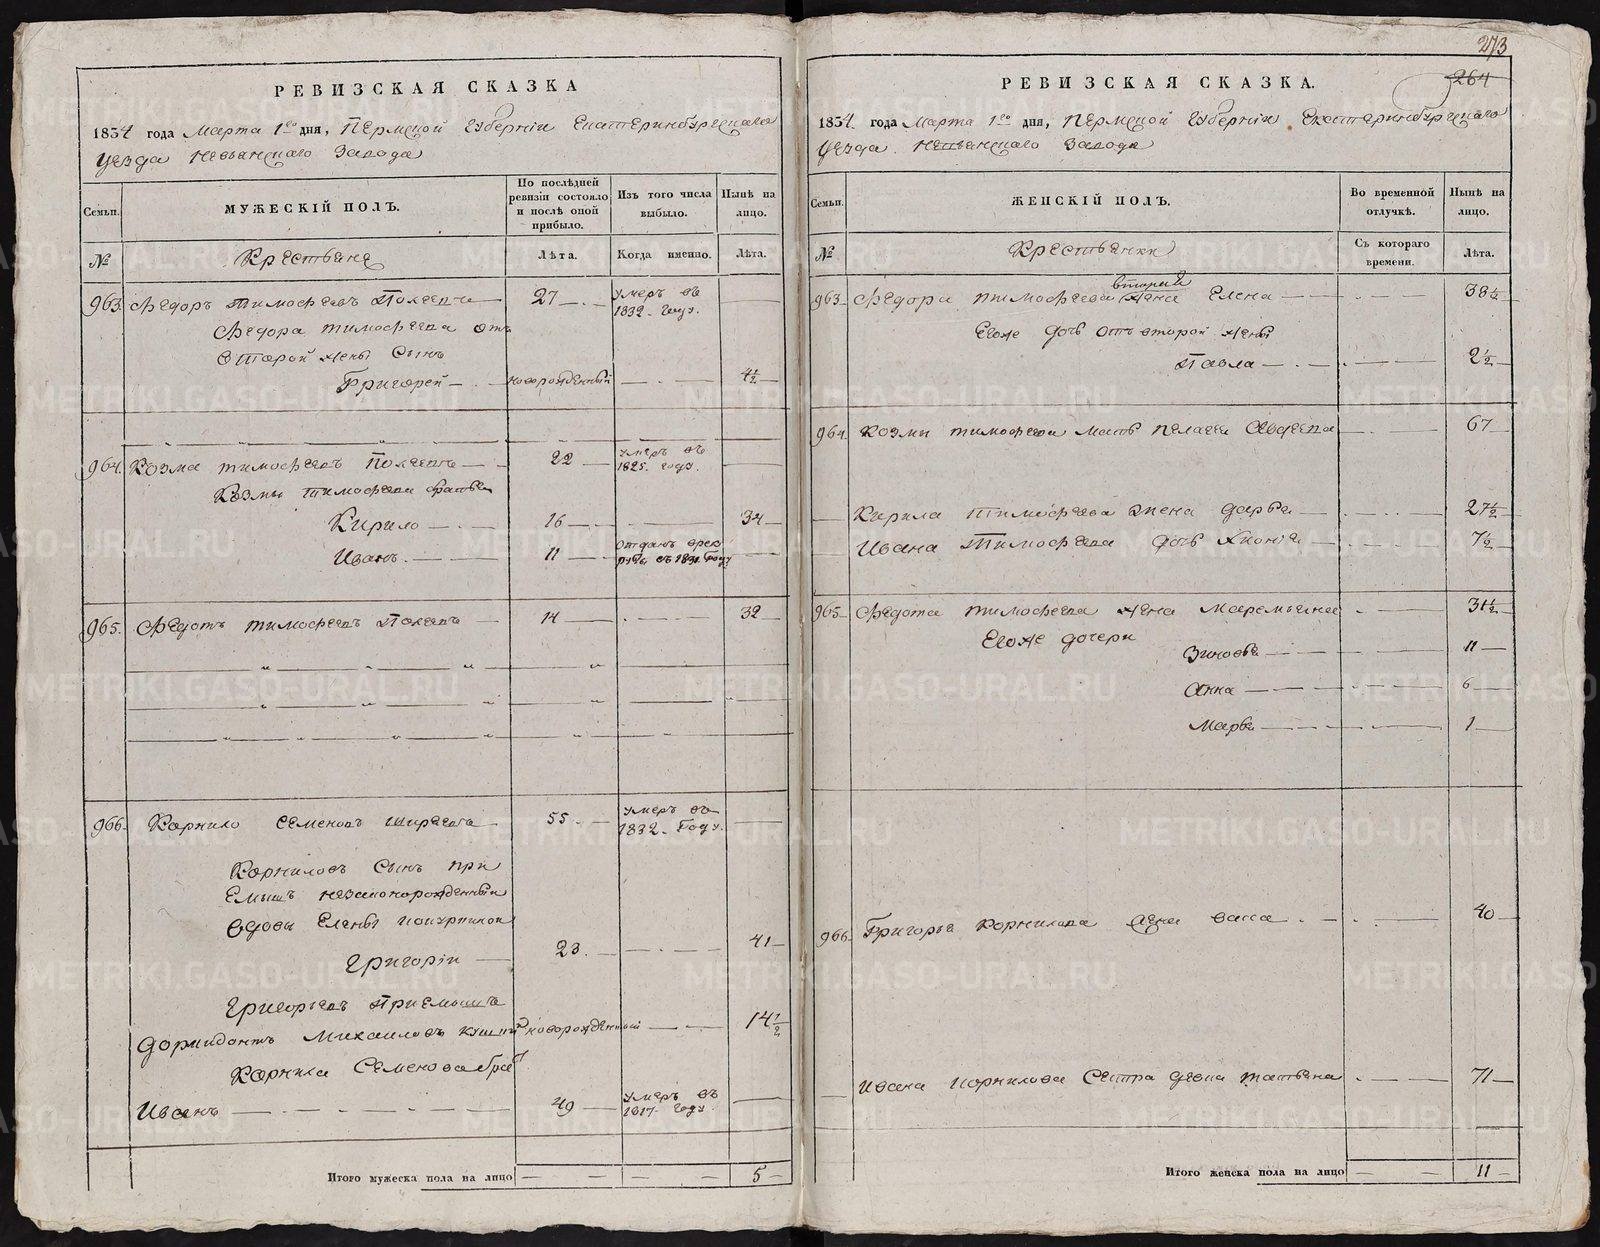 РЕВИЗСКАЯ СКАЗКА
1834 года Марта 1го дня, Пермской Губернiи Екатеринбургскаго
Уезда Невьянскаго Завода
Семьи.
МУЖЕСКІЙ ПОЛЪ.
По послѣдней ревизіи состояло и послѣ оной прибыло.
Изъ того числа выбыло.
Нынѣ на лицо.
№
Крестьяне
Лѣта.
Когда именно.
Лѣта.
963. Федоръ Тимофеевъ 27 Умеръ въ
1832. Году.
Федора Тимофеева отъ
второй жены Сынъ
Григорей новорожденный 4½
964. Козма Тимофеевъ 22 Умеръ въ
1825. Году.
Козмы Тимофеева братья
Кирило 16 34
Иванъ 11 Отданъ врек
руты въ Году
965. Федотъ Тимофеевъ 14 32
966. Корнило Семеновъ 55 Умеръ въ
1832. Году.
Корниловъ Сынъ при
Емышъ незаконорожденный
вдовы Елены
Григорiи 23. 41
Григорьевъ Приемышъ
Дормидонтъ Михаиловъ новорожденный 14½
Корнила Семенова брат
Иванъ 49 Умеръ въ
1817. Году.
Итого мужеска пола на лицо 5
273
264
РЕВИЗСКАЯ СКАЗКА.
1834 года Марта 1го дня, Пермской Губернiи Екатеринбургскаго
Уезда Невьянскаго Завода
Семьи.
ЖЕНСКІЙ ПОЛЪ.
Во временной отлучкѣ.
Нынѣ на лицо.
№
Крестьянки
Съ котораго времени.
Лѣта.
963. Федора Тимофеева вторая жена Елена 38½
Егоже дочь отъ второй жены
Павла 2½
964. Козмы Тимофеева мать Пелагея 67
Кирила Тимофеева жена Дарья 27½
Ивана Тимофеева дочь Хионiя 7½
965. Федота Тимофеева жена Маремьяна 31½
Егоже дочери
Зиновья 11
Анна 6
Марья 1
966. Григорья Корнилова жена Васса 40
Ивана Корнилова Сестра девка Татьяна 71
Итого женска пола на лицо 11
METRIKI.GASO-URAL.RU